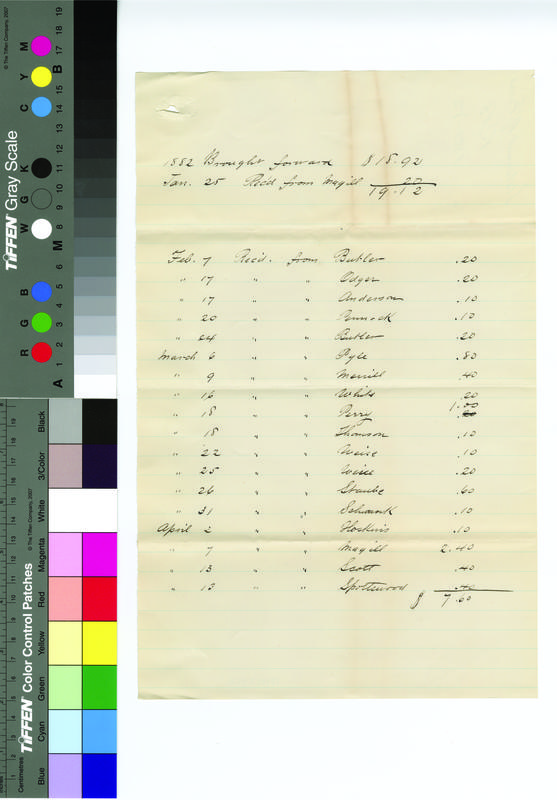 1882 Brought forward $18.92
Jan. 25 Rec'd from Magill .20
19.12
Feb. 7 Rec'd. from Butler .20
" 17 " " Odger .20
" 17 " " Anderson .10
" 20 " " Pennock .10
" 24 " " Butler .20
March 6 " " Pyle .80
" 9 " " Merrill .40
" 16 " " White .20
" 18 " " Perry 1.00
" 18 " " Thomson .10
" 22 " " Weise .10
" 25 " " .20
" 26 " " Staube .60
" 31 " " Schwenk .10
April 2 " " Hoskins .10
" 7 " " Magill 2.40
" 13 " " Scott .40
" 13 " " Spottswood .40
$ 7.60
TIFFEN Gray Scale
© The Tiffen Company, 2007
R G B W G K C Y M
A 1 2 3 4 5 6 M 8 9 10 11 12 13 14 15 B 17 18 19
TIFFEN Color Control Patches
© The Tiffen Company, 2007
Centimetres
Blue Cyan Green Yellow Red Magenta White 3/Color Black